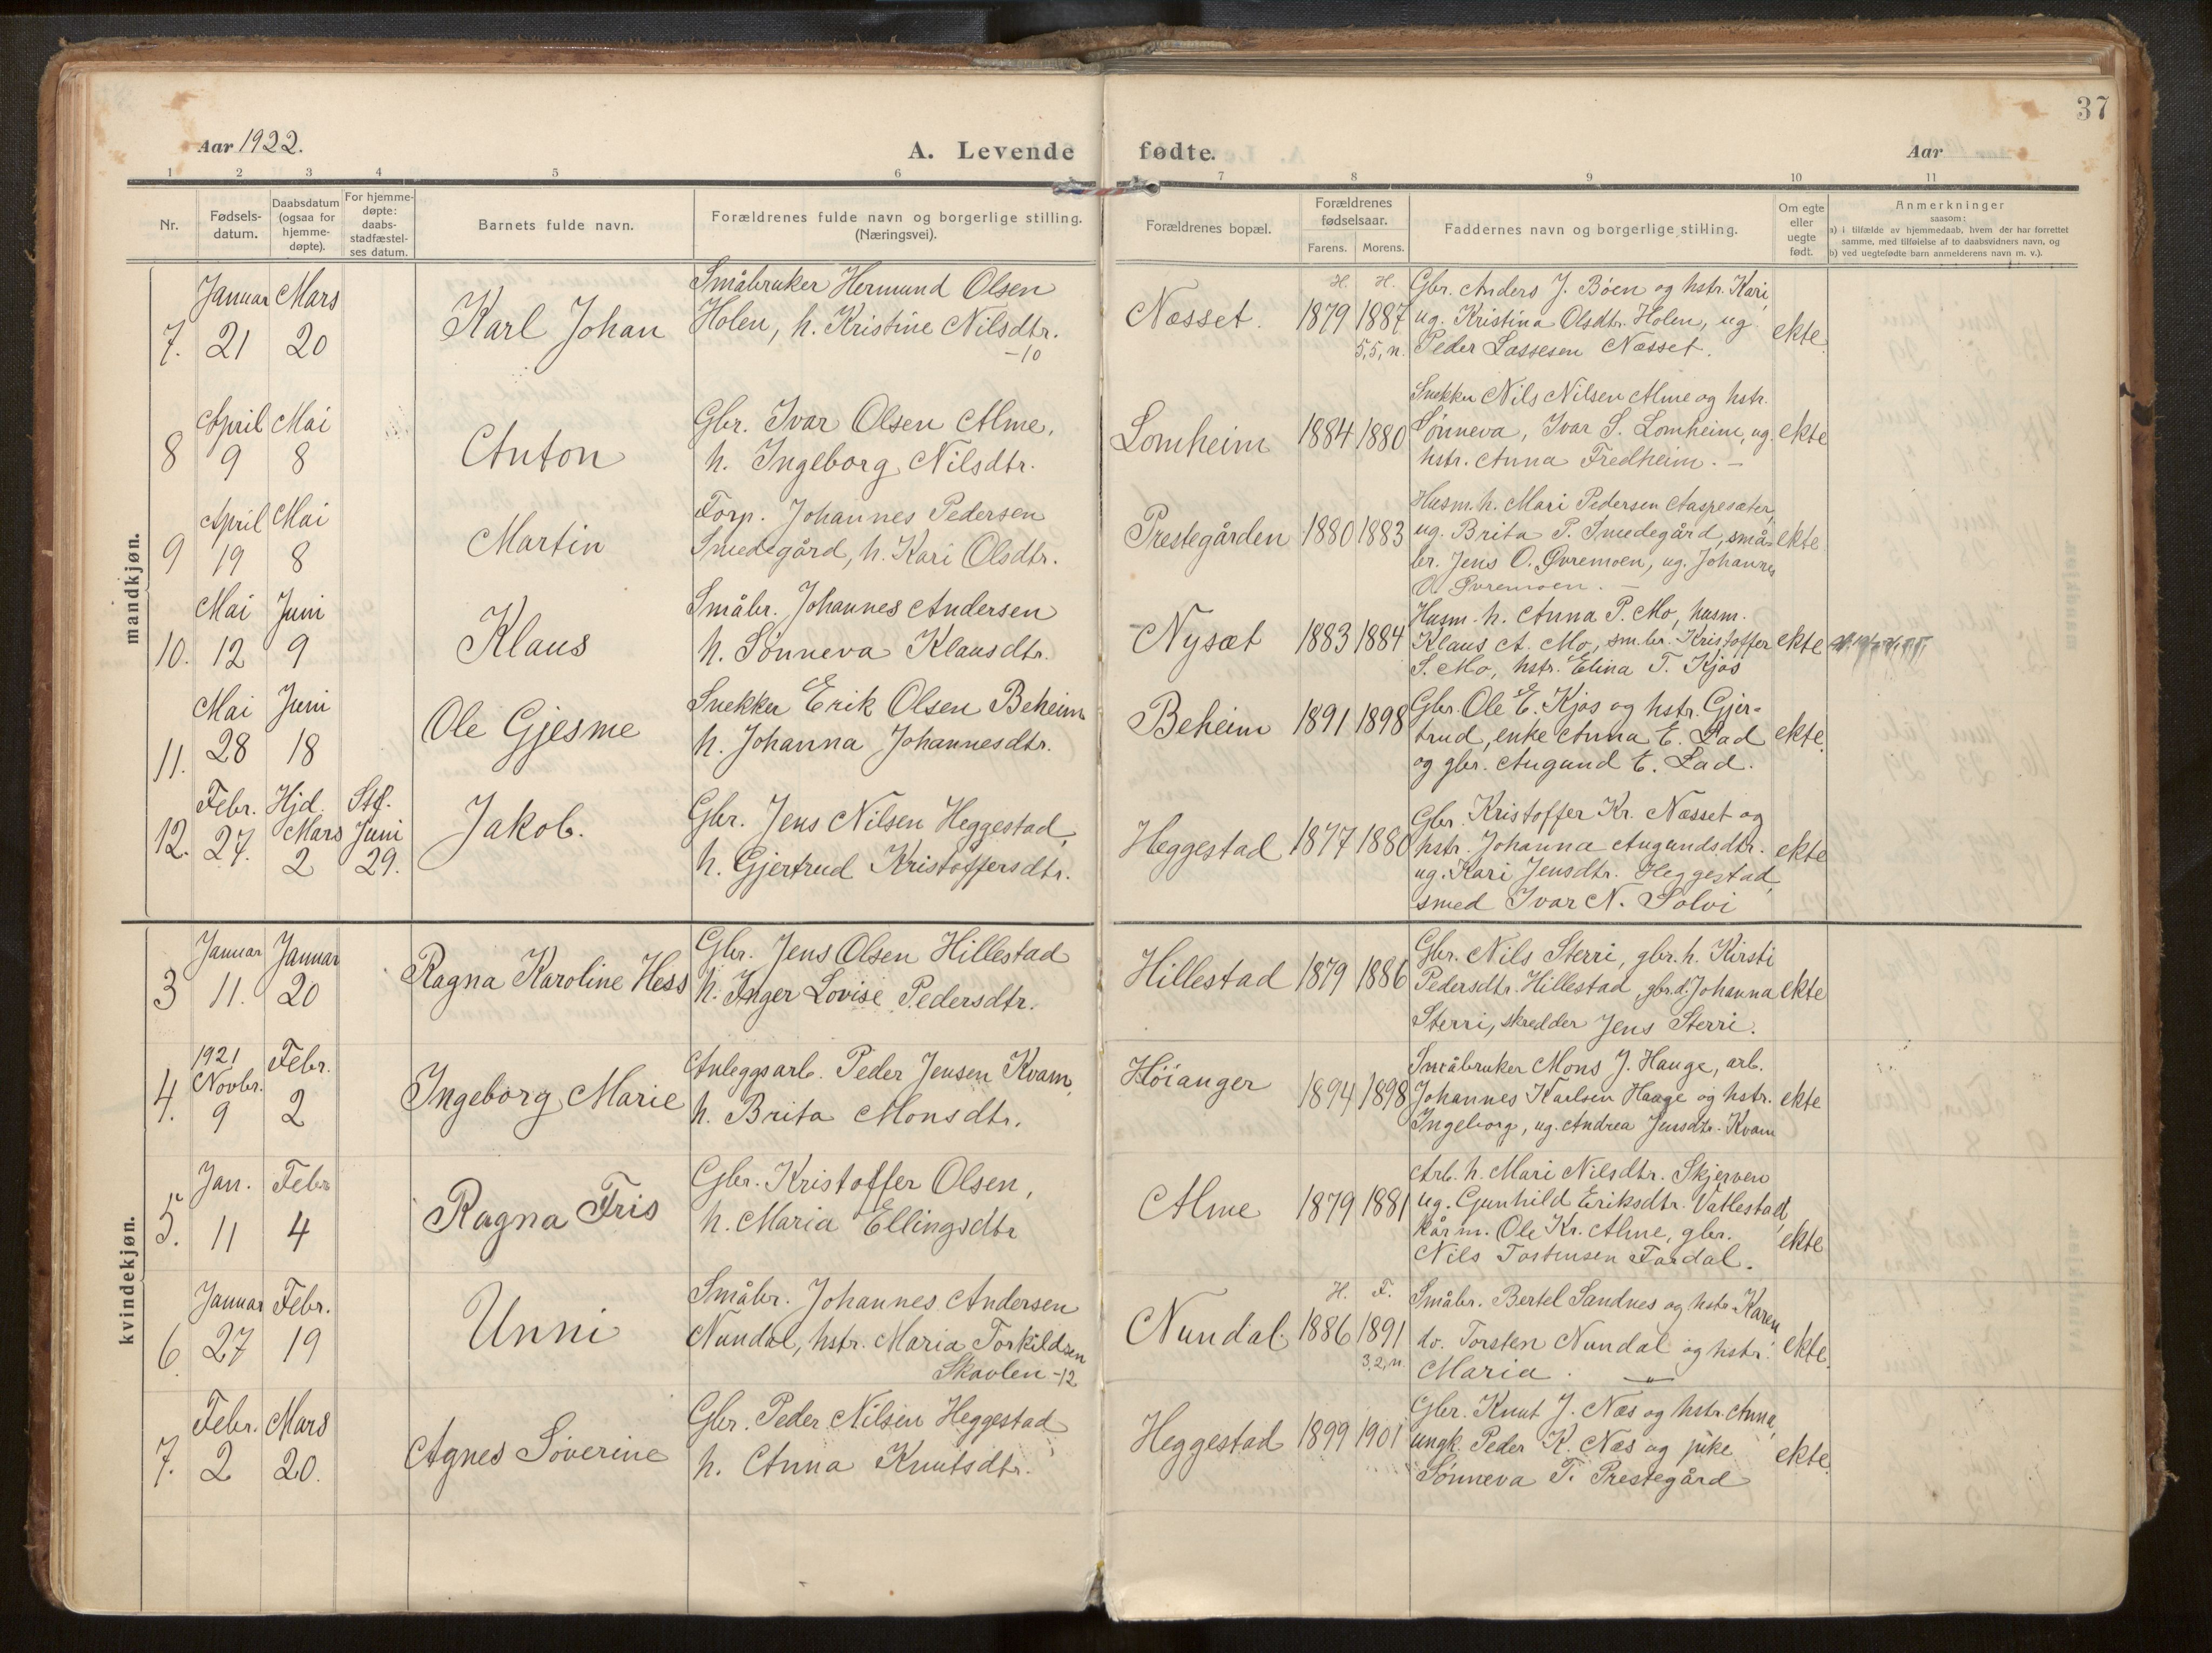 37
Aar 1922.
A. Levende fødte.
Aar
1 2 3 4 5 6 7 8 9 10 11
Nr.
Fødsels-
datum.
Daabsdatum
(ogsaa for
hjemme-
døpte).
For hjemme-
døpte:
daabs-
stadfæstel-
ses datum.
Barnets fulde navn.
Forældrenes fulde navn og borgerlige stilling.
(Næringsvei).
Forældrenes bopæl.
Forældrenes
fødselsaar.
Farens. Morens.
Faddernes navn og borgerlige stilling.
Om egte
eller
uegte
født.
Anmerkninger
saasom:
a) i tilfælde av hjemmedaab, hvem der har forrettet
samme, med tilføielse af to daabsvidners navn, og
b) ved uegtefødte barn anmelderens navn m. v.).
mandkjøn.
7.
Januar
21
Mars
20
Karl Johan
Småbruker Hermund Olsen
Holen, h. Kristine Nilsdtr.
-10
Næsset.
H. H.
1879 1887
5,5, n.
Gbr. Anders J. Bøen og hstr. Kari,
ug. Kristina Olsdtr. Holen, ug.
Peder Lassesen Næsset.
ekte.
8
April
9
Mai
8
Anton
Gbr. Ivar Olsen Alme,
h. Ingeborg Nilsdtr.
Lomheim
1884 1880
Snekker Nils Nilsen Alme og hstr.
Sønneva, Ivar S. Lomheim, ug.
hstr. Anna Fredheim. -
ekte
9
April
19
Mai
8
Martin
Forp. Johannes Pedersen
Smedegård, h. Kari Olsdtr.
Prestegården
1880 1883
Husm. h. Mari Pedersen Aaspesæter,
ug. Brita P. Smedegård, små-
br. Jens O. Øvremoen, ug. Johannes
O. Øvremoen. -
ekte
10.
Mai
12
Juni
9
Klaus
Småbr. Johannes Andersen
h. Sønneva Klausdtr.
Nysæt
1883 1884
Husm. h. Anna P. Mo, husm.
Klaus A. Mo, sm.br. Kristoffer
S. Mo, hstr. Elina T. Kjøs
ekte
11.
Mai
28
Juni
18
Ole Gjesme
Snekker Erik Olsen Beheim
h. Johanna Johannesdtr.
Beheim
1891 1898
Gbr. Ole E. Kjos og hstr. Gjer-
trud, enke Anna E. Lad
og gbr. Augund E. Lad.
ekte.
12.
Febr.
27.
Hjd.
Mars
2
Stf.
Juni
29.
Jakob.
Gbr. Jens Nilsen Heggestad,
h. Gjertrud Kristoffersdtr.
Heggestad
1877 1880
Gbr. Kristoffer Kr. Næsset og
hstr. Johanna Augundsdtr.
ug. Kari Jensdtr. Heggestad,
smed Ivar N. Solvi
ekte
kvindekjøn.
3
Januar
11.
Januar
20
Ragna Karoline Hess
Gbr. Jens Olsen Hillestad
h. Inger Lovise Pedersdtr.
Hillestad
1879 1886
Gbr. Nils Sterri, gbr. h. Kirsti
Pedersdtr. Hillestad, gbr.d. Johanna
Sterri, skredder Jens Sterri.
ekte
4.
1921
Novbr.
9
Febr.
2
Ingeborg Marie
Anleggsarb. Peder Jensen Kvam,
h. Brita Monsdtr.
Høianger
1894 1898
Småbruker Mons J. Hauge, arb.
Johannes Karlsen Hauge og hstr.
Ingeborg, ug. Andrea Jensdtr. Kvam
ekte
5.
Jan.
11
Febr.
4
Ragna Fris
Gbr. Kristoffer Olsen,
h. Maria Ellingsdtr
Alme
1879 1881
Arb. h. Mari Nilsdtr. Skjerven
ug. Gunhild Eriksdtr. Vatlestad,
kårm. Ole Kr. Alme, gbr.
Nils Tostensen Fardal.
ekte
6.
Januar
27
Febr.
19
Unni
Småbr. Johannes Andersen
Nundal, hstr. Maria Torkildsen
Skavlen -12
Nundal.
H. F.
1886 1891
3,2, n.
Småbr. Bertel Sandnes og hstr. Karen,
do. Torsten Nundal og hstr.
Maria.
ekte.
7.
Febr.
2
Mars
20.
Agnes Søverine
Gbr. Peder Nilsen Heggestad
h. Anna Knutsdtr.
Heggestad
1899 1901
Gbr. Knut J. Næs og hstr. Anna,
ungk. Peder K. Næs og pike
Sønneva T. Prestegård
ekte.